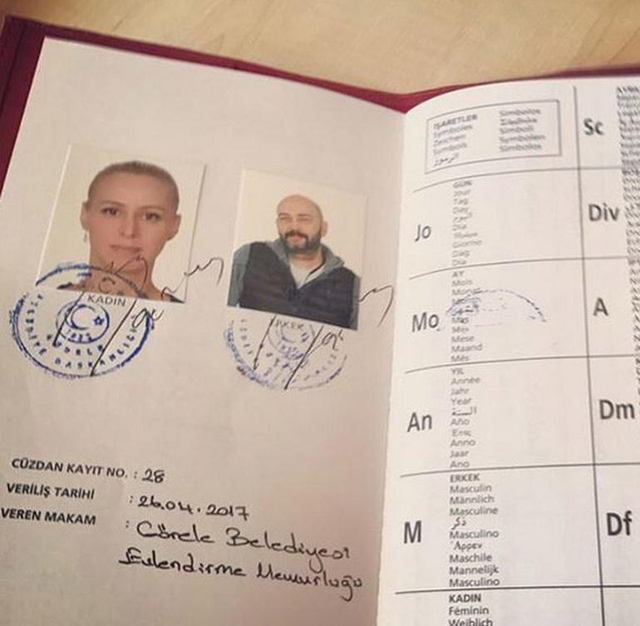 KADIN
ERKEK
CÜZDAN KAYIT NO. : 28
VERİLİŞ TARİHİ : 26.04.2017
VEREN MAKAM : Görele Belediyesi
Evlendirme Memurluğu
İŞARETLER
Symboles
Zeichen
Symbols
الرموز
Símbolos
Simboli
Symbolen
Símbolos
Sc
Jo
GÜN
Jour
Tag
Day
Día
Giorno
Dag
Dia
Div
Mo
AY
Mois
Mes
Mese
Maand
Mês
A
An
YIL
Année
Jahr
Year
السنة
Año
Έτος
Anno
Jaar
Ano
Dm
M
ERKEK
Masculin
Männlich
Masculine
ذكر
Masculino
Άρρεν
Maschile
Mannelijk
Masculino
Df
KADIN
Féminin
Weiblich